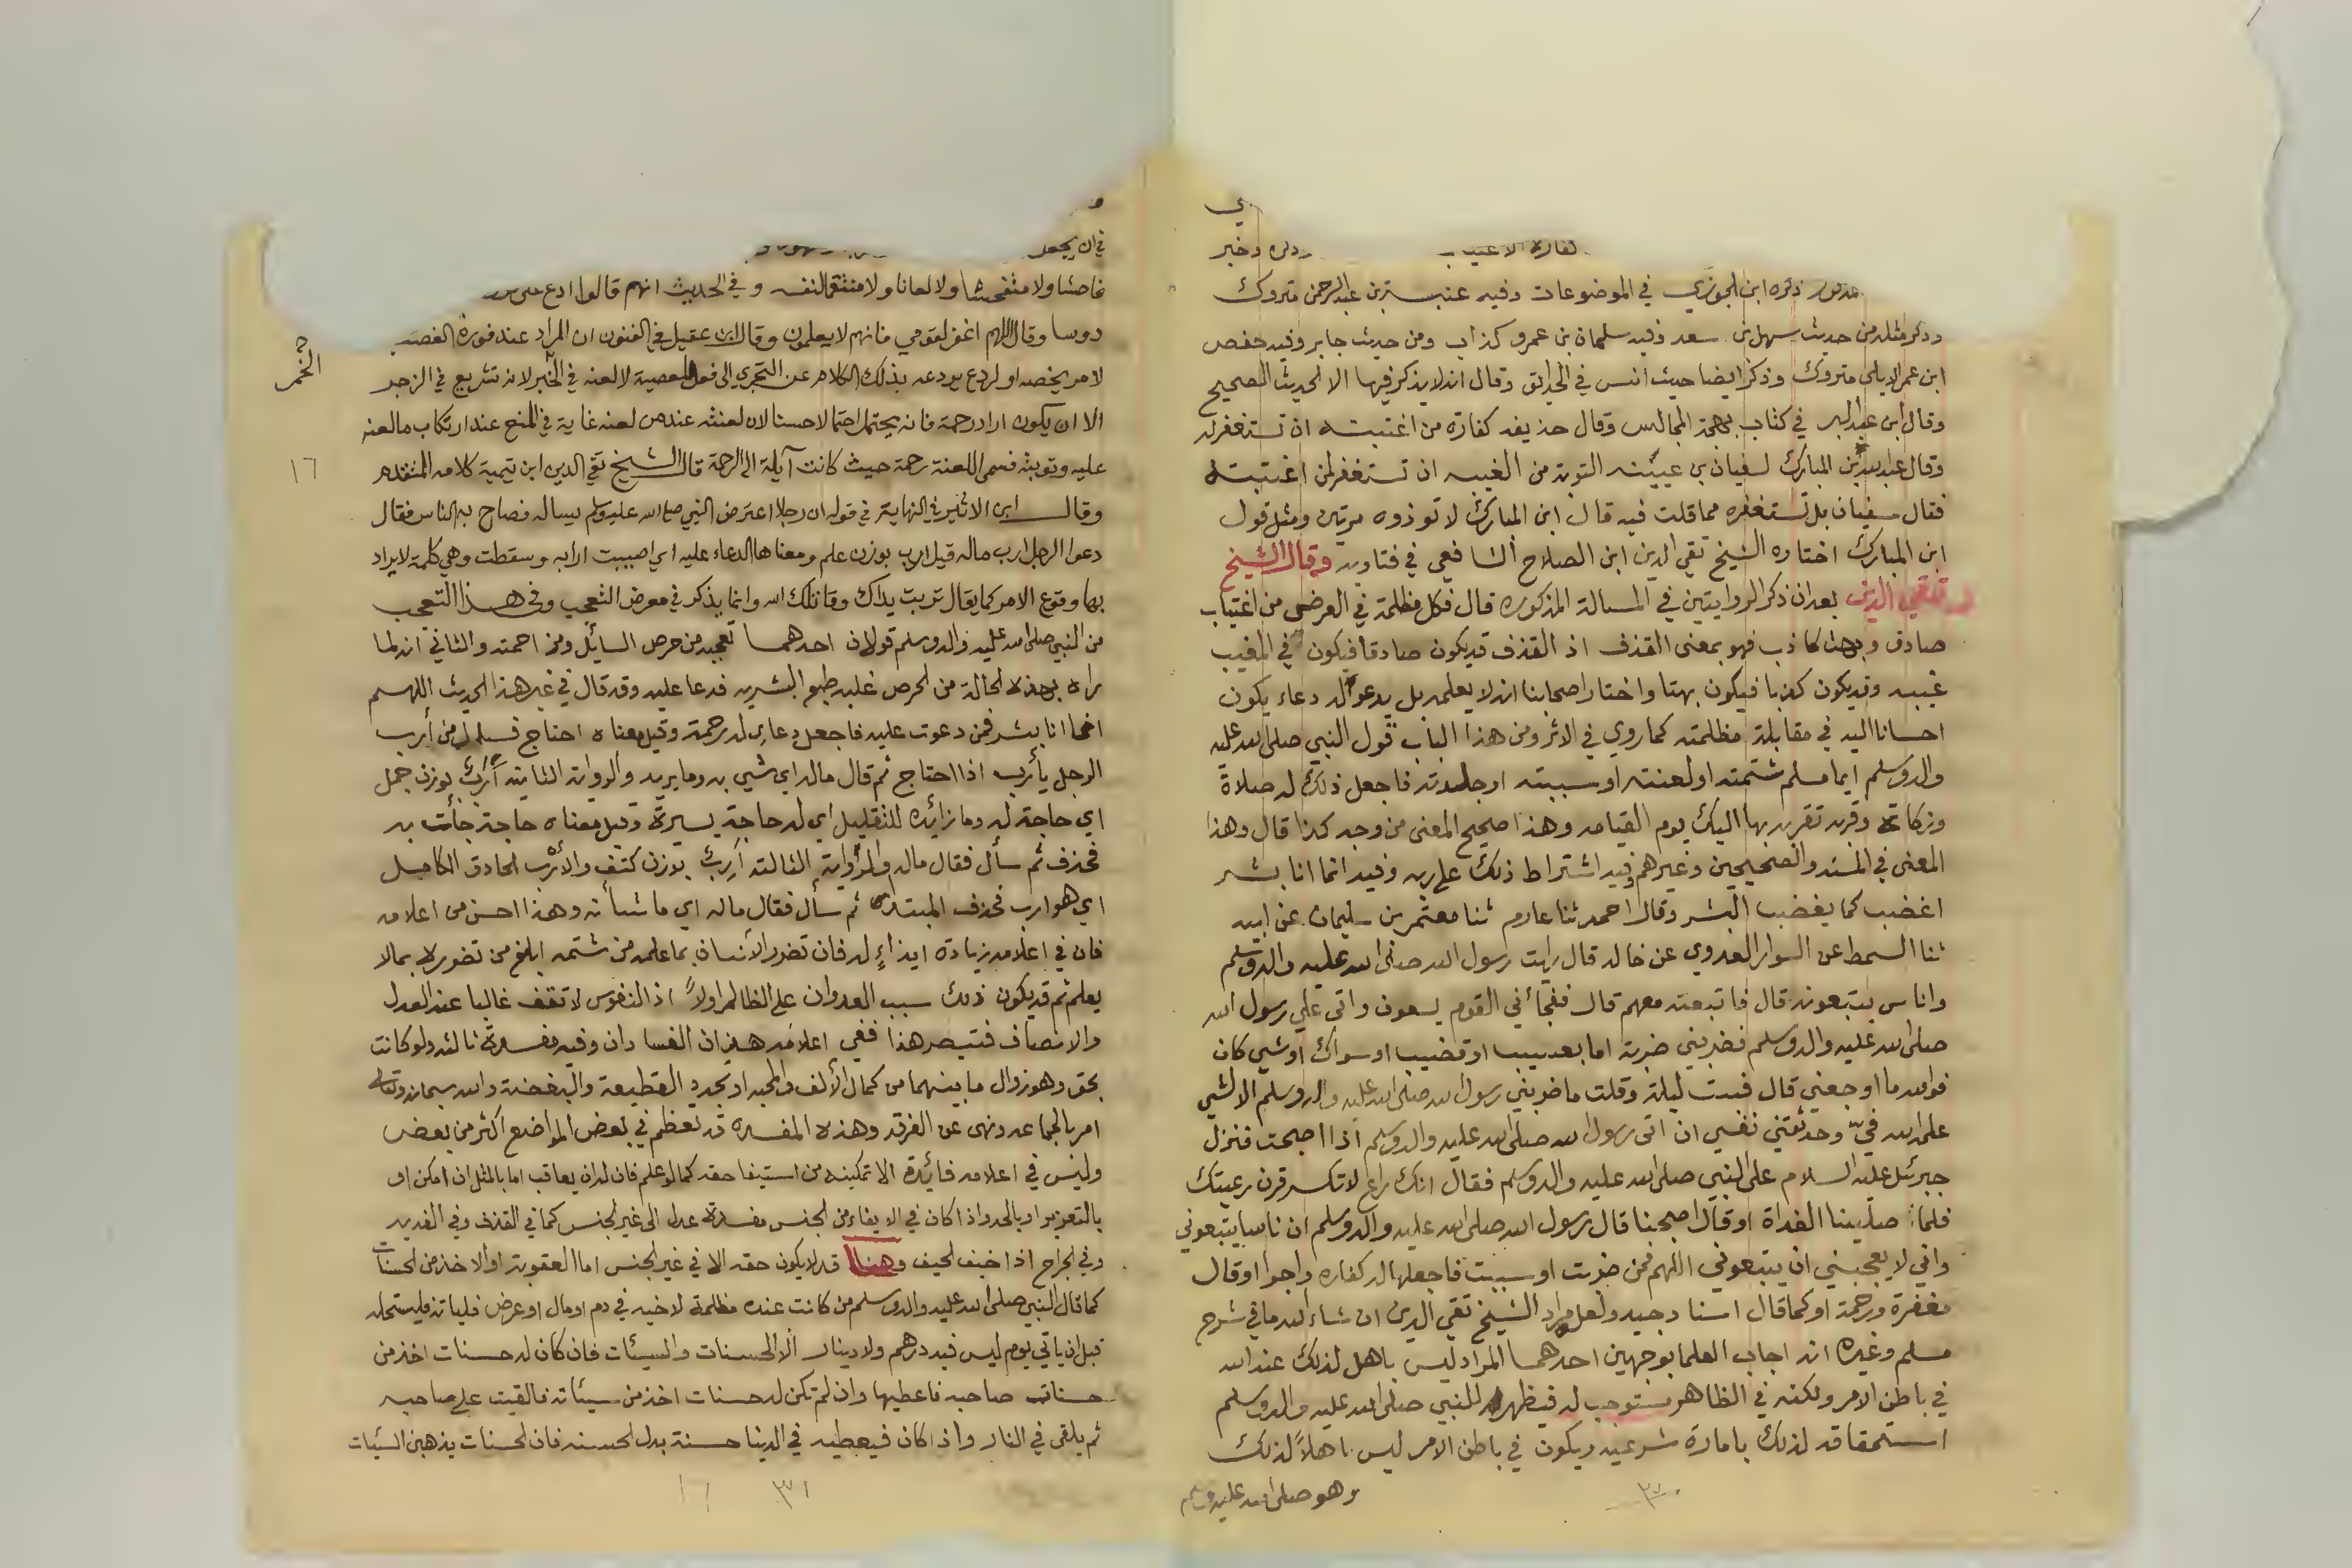 كفارة الاغتياب وذكره وخبر
ذكره ابن الجوزي في الموضوعات وفيه عنبسة بن عبد الرحمن متروك
وذكر مثله من حديث سهل بن سعد وفيه سليمان بن عمرو كذاب ومن حديث جابر وفيه حفص
ابن عمر الايلي متروك وذكر ايضا حديث انس في الحدائق وقال انه لا يذكر فيها الا الحديث الصحيح
وقال ابن عبد البر في كتاب بهجة المجالس وقال حذيفه كفارة من اغتبته ان تستغفر له
وقال عبد الله بن المبارك لسفيان بن عيينه التوبة من الغيبه ان تستغفر لمن اغتبته
فقال سفيان بل تستغفره مما قلت فيه قال ابن المبارك لا توذوه مرتين ومثل قول
ابن المبارك اختاره الشيخ تقي الدين ابن الصلاح الشافعي في فتاويه وقال الشيخ
تقي الدين بعد ان ذكر الروايتين في المسالة المذكوره قال فكل مظلمة في العرض من اغتياب
صادق وبهت كاذب فهو بمعنى القذف اذ القذف قد يكون صادقا فيكون في المغيب
غيبه وقد يكون كذبا فيكون بهتا واختار اصحابنا انه لا يعلمه بل يدعو له دعاء يكون
احسانا اليه في مقابلة مظلمته كما روي في الاثر ومن هذا الباب قول النبي صلى الله عليه
واله وسلم ايما مسلم شتمته او لعنته او سببته او جلدته فاجعل ذلك له صلاة
وزكاة وقربة تقربه بها اليك يوم القيامه وهذا صحيح المعنى من وجه كذا قال وهذا
المعنى في المسند والصحيحين وغيرهم وفيه اشتراط ذلك على ربه وفيه انما انا بشر
اغضب كما يغضب البشر وقال احمد ثنا عارم ثنا معتمر بن سليمان عن ابيه
ثنا السميط عن السوار العدوي عن خاله قال رايت رسول الله صلى الله عليه واله وسلم
واناس يتبعونه قال فاتبعته معهم قال ففجأني القوم يسعون واتى علي رسول الله
صلى الله عليه واله وسلم فضربني ضربة اما بعسيب او قضيب او سواك او شي كان
فوالله ما اوجعني قال فبت ليلة وقلت ما ضربني رسول الله صلى الله عليه واله وسلم الا لشي
علمه الله في وحدثتني نفسي ان اتى رسول الله صلى الله عليه واله وسلم اذا اصبحت فنزل
جبرئيل عليه السلام على النبي صلى الله عليه واله وسلم فقال انك راع لا تكسر قرن رعيتك
فلما صلينا الغداة او قال اصبحنا قال رسول الله صلى الله عليه واله وسلم ان ناسا يتبعوني
واني لا يعجبني ان يتبعوني اللهم فمن ضربت او سببت فاجعلها له كفاره واجرا او قال
مغفرة ورحمة او كما قال اسناد جيد ولعل مراد الشيخ تقي الدين ان شاء الله ما في شرح
مسلم وغيره انه اجاب العلما بوجهين احدهما المراد ليس باهل لذلك عند الله
في باطن الامر ولكنه في الظاهر مستوجب له فيظهر للنبي صلى الله عليه واله وسلم
استحقاقه لذلك بامارة شرعيه ويكون في باطن الامر ليس اهلاً لذلك
وهو صلى الله عليه وسلم
٣٠
في ان يجعل
فاحشا ولا متفحشا ولا لعانا ولا منتقما لنفسه وفي الحديث انهم قالوا ادع على
دوسا وقال اللهم اغفر لقومي فانهم لا يعلمون وقال ابن عقيل في الفنون ان المراد عند فورة الغضب
لامر يخصه او لردع يردعه بذلك الكلام عن التجري الى فعل المعصية لا لعنه في الخمر لانه تشريع في الزجر
الا ان يكون اراد رحمة فانه يحتمل احتمالا حسنا لان لعنته عند من لعنه غاية في المنع عند ارتكاب ما لعنه
عليه وتوبته فسمى اللعنة رحمة حيث كانت آيلة الى الرحمة قال الشيخ تقي الدين ابن تيمية كلامه المتقدم
وقال ابن الاثير في النهاية في قوله ان رجلا اعترض النبي صلى الله عليه وسلم يساله فصاح به الناس فقال
دعوا الرجل ارب ماله قيل ارب بوزن علم ومعناها الدعاء عليه اي اصيبت ارابه وسقطت وهي كلمة لا يراد
بها وقوع الامر كما يقال تربت يداك وقاتلك الله وانما يذكر في معرض التعجب وفي هذا التعجب
من النبي صلى الله عليه واله وسلم قولان احدهما تعجبه من حرص السايل ومزاحمته والثاني انه لما
راه بهذه الحالة من الحرص غلبه طبع البشريه فدعا عليه وقد قال في غير هذا الحديث اللهم
انما انا بشر فمن دعوت عليه فاجعل دعاي له رحمة وقيل معناه احتاج فسال من أرب
الرجل يأرب اذا احتاج ثم قال ماله اي شي به وما يريد والرواية الثانية أرب بوزن جمل
اي حاجة له وما زائده للتقليل اي له حاجة يسيرة وقيل معناه حاجة جاءت به
فحذف ثم سأل فقال ماله والرواية الثالثة أرب بوزن كتف والأرب الحاذق الكامل
اي هو ارب فحذف المبتدا ثم سأل فقال ماله اي ما شأنه وهذا احسن من اعلامه
فان في اعلامه زيادة ايذاءٍ له فان تضرر الانسان بما علمه من شتمه ابلغ من تضرره بما لا
يعلم ثم قد يكون ذلك سبب العدوان على الظالم اولاً اذ النفوس لا تقف غالبا عند العدل
والانصاف فتبصر هذا ففي اعلامه هذان الفسادان وفيه مفسدة ثالثه ولو كانت
بحق وهو زوال ما بينهما من كمال الألف والمحبه او تجدد القطيعة والبغضة والله سبحانه وتعالى
امر بالجماعه ونهى عن الفرقه وهذه المفسده قد تعظم في بعض المواضع اكثر من بعض
وليس في اعلامه فائدة الا تمكينه من استيفا حقه كما لو علم فان له ان يعاقب اما بالمثل ان امكن او
بالتعزير او بالحد واذا كان في الايفاء من الجنس مفسدة عدل الى غير الجنس كما في القذف وفي الفديه
وفي الجراح اذا خيف الحيف وهنا قد لا يكون حقه الا في غير الجنس اما العقوبة او الاخذ من الحسنات
كما قال النبي صلى الله عليه واله وسلم من كانت عنده مظلمة لاخيه في دم او مال او عرض فلياته فليستحله
قبل ان ياتي يوم ليس فيه درهم ولا دينار الا الحسنات والسيئات فان كان له حسنات اخذ من
حسناته صاحبه فاعطيها وان لم تكن له حسنات اخذ من سيئاته فالقيت على صاحبه
ثم يلقى في النار واذا كان فيعطيه في الدنيا حسنة بدل الحسنه فان الحسنات يذهبن السيئات
الخمر
١٦
٣١
١٦